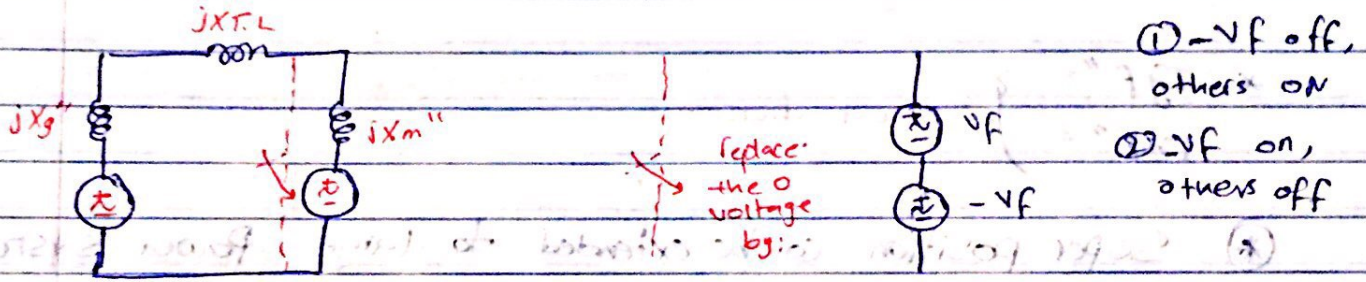 jXT.L
jXg"
jXm"
replace
the 0
voltage
by:
Vf
-Vf
① -Vf off,
others ON
② -Vf on,
others off